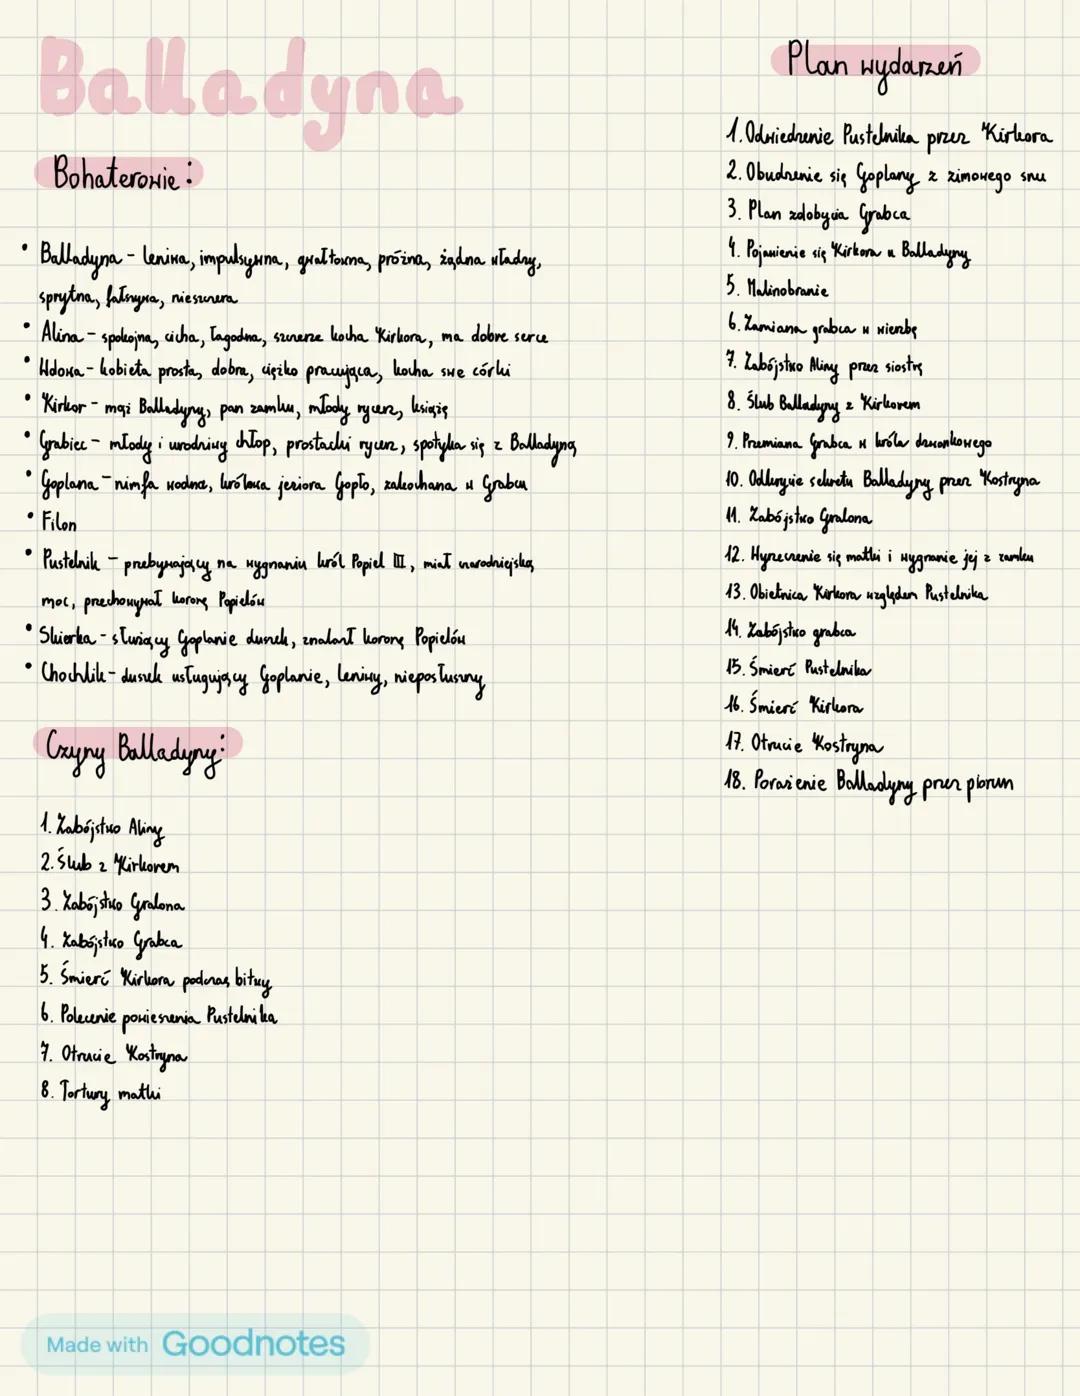 Balladyna
Bohaterowie:
• Balladyna - leniwa, impulsywna, gwałtowna, próżna, żądna władzy,
sprytna, fałszywa, nieszczera
• Alina - spokojna, cicha, łagodna, szczerze kocha Kirkora, ma dobre serce
• Wdowa - kobieta prosta, dobra, ciężko pracująca, kocha swe córki
• Kirkor - mąż Balladyny, pan zamku, młody rycerz, książę
• Grabiec - młody i urodziwy chłop, prostacki rycerz, spotyka się z Balladyną
• Goplana - nimfa wodna, królowa jeziora Gopło, zakochana w Grabcu
• Filon
• Pustelnik - przebywający na wygnaniu król Popiel III, miał czarodziejską
moc, przechowywał koronę Popielów
• Skierka - służący Goplanie duszek, znalazł koronę Popielów
• Chochlik - duszek usługujący Goplanie, leniwy, nieposłuszny
Czyny Balladyny:
1. Zabójstwo Aliny
2. Ślub z Kirkorem
3. Zabójstwo Gralona
4. Zabójstwo Grabca
5. Śmierć Kirkora podczas bitwy
6. Polecenie powieszenia Pustelnika
7. Otrucie Kostryna
8. Tortury matki
Plan wydarzeń
1. Odwiedzenie Pustelnika przez Kirkora
2. Obudzenie się Goplany z zimowego snu
3. Plan zdobycia Grabca
4. Pojawienie się Kirkora u Balladyny
5. Malinobranie
6. Zamiana grabca w wierzbę
7. Zabójstwo Aliny przez siostrę
8. Ślub Balladyny z Kirkorem
9. Przemiana Grabca w króla dzwonkowego
10. Odkrycie sekretu Balladyny przez Kostryna
11. Zabójstwo Gralona
12. Wyrzeczenie się matki i wygnanie jej z zamku
13. Obietnica Kirkora względem Pustelnika
14. Zabójstwo grabca
15. Śmierć Pustelnika
16. Śmierć Kirkora
17. Otrucie Kostryna
18. Porażenie Balladyny przez piorun
Made with Goodnotes